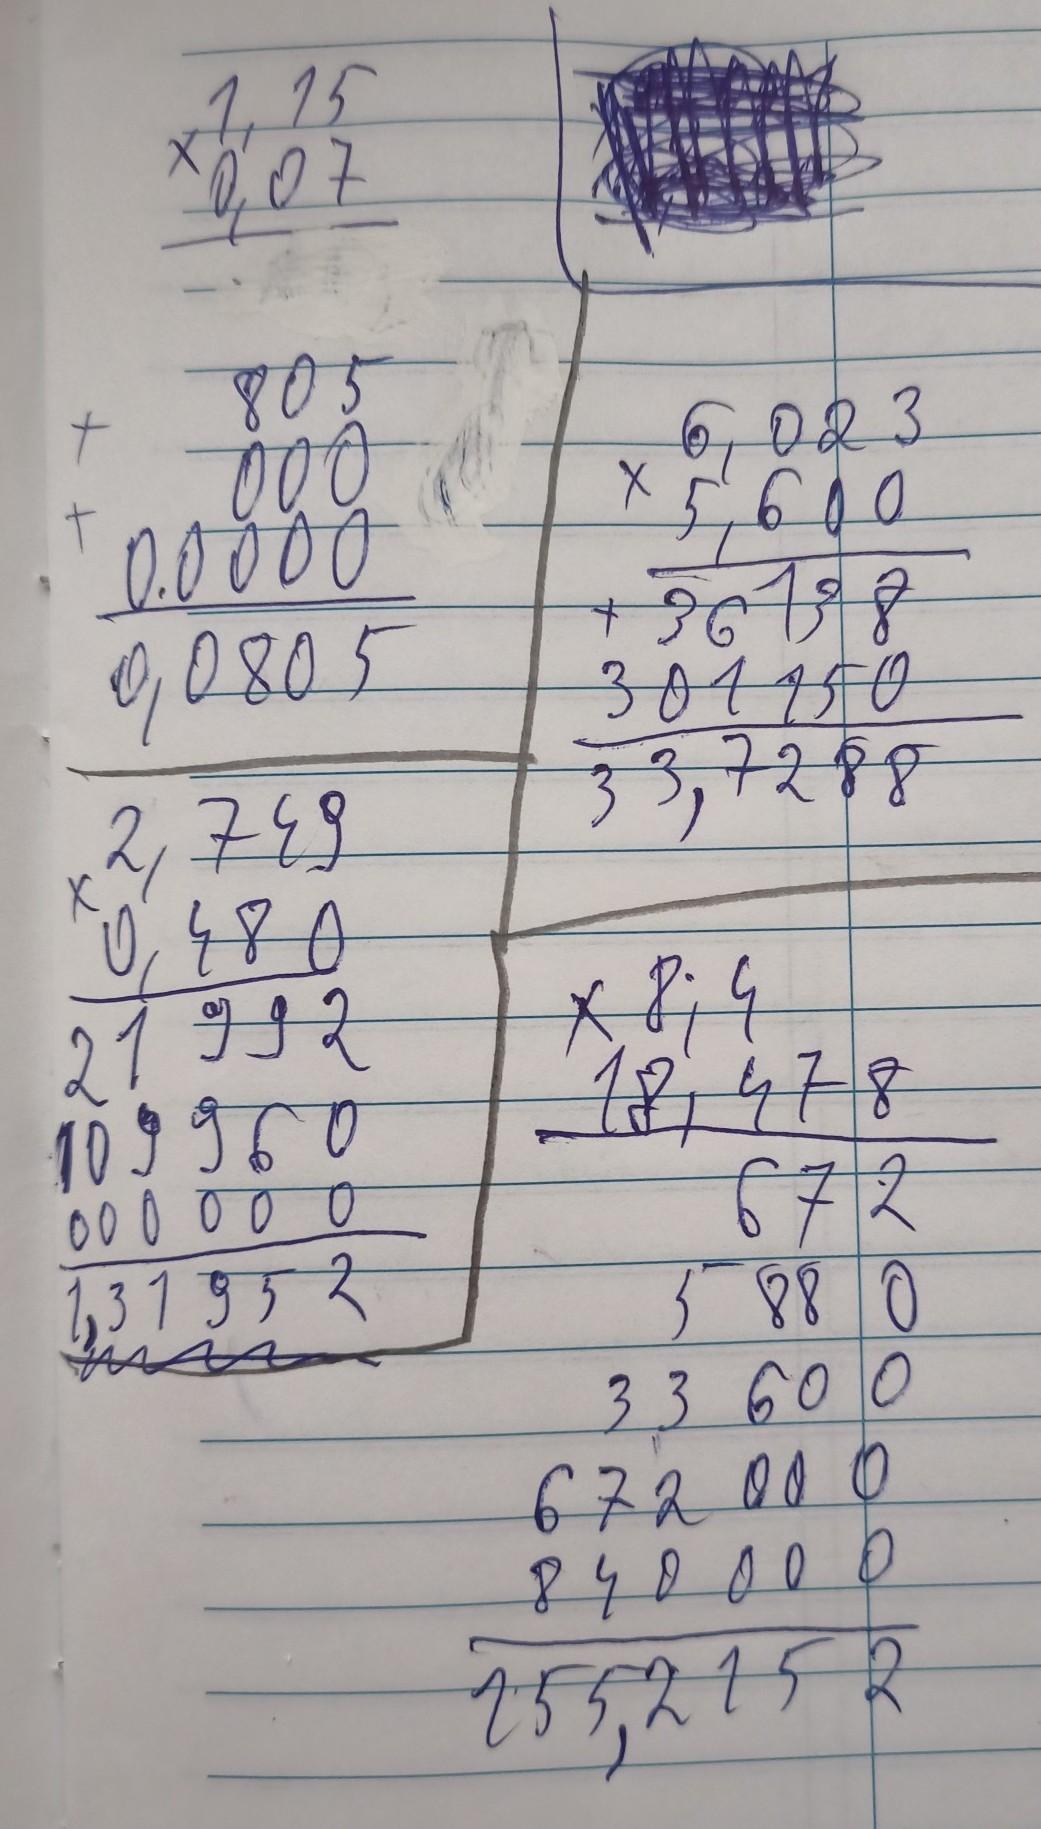 1,15
× 0,07
805
+ 000
+ 0.0000
0,0805
6,023
× 5,600
+ 36138
301150
33,7288
2,749
× 0,480
21992
109960
000000
1,31952
× 8,4
18,478
672
5880
33600
672000
840000
155,2152